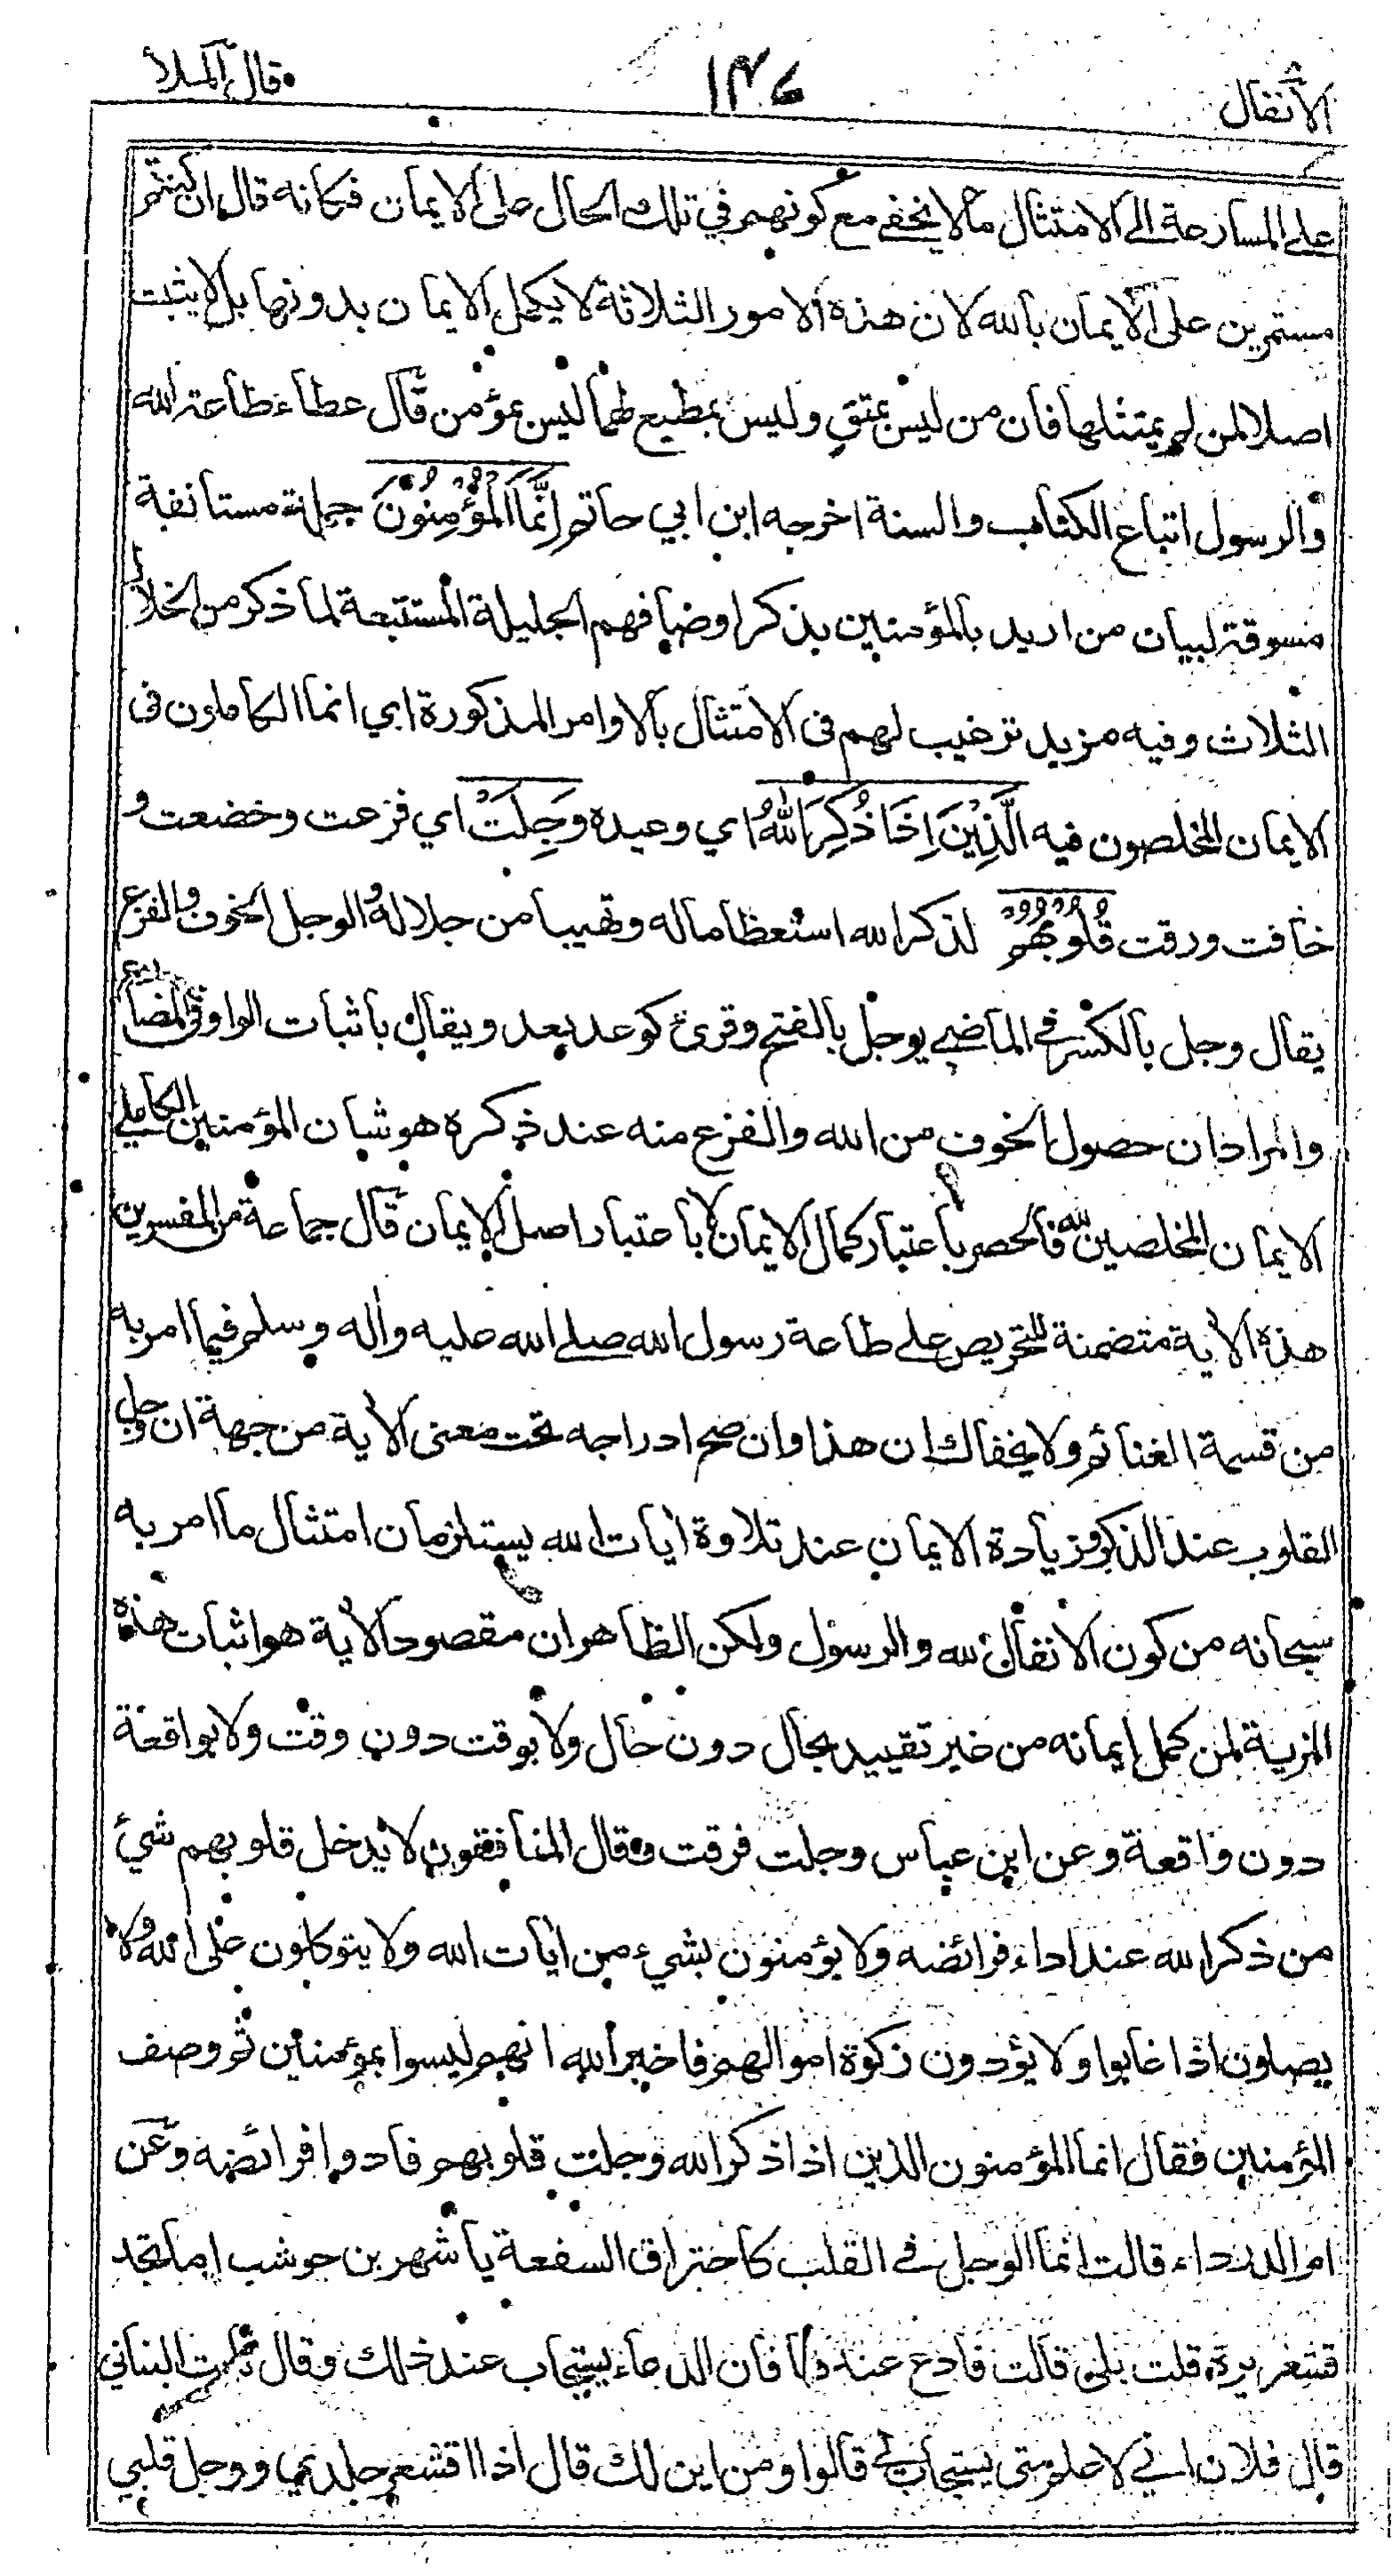 الأنفال
١٣٧
قال الملأ
على المسارعة الى الامتثال مالا يخفى مع كونهم في تلك الحال على الايمان فكانه قال ان كنتم
مستمرين على الايمان بالله لان هذه الامور الثلاثة لا يكمل الايمان بدونها بل لا يثبت
اصلا لمن لم يمتثلها فان من ليس بمتقٍ وليس بمطيع لهما ليس بمؤمن قال عطاء طاعة الله
والرسول اتباع الكتاب والسنة اخرجه ابن ابي حاتم اِنَّمَا الْمُؤْمِنُوْنَ جملة مستانفة
مسوقة لبيان من اريد بالمؤمنين بذكر اوصافهم الجليلة المستتبعة لما ذكر من الخلال
الثلاث وفيه مزيد ترغيب لهم فى الامتثال بالاوامر المذكورة اي انما الكاملون فى
الايمان المخلصون فيه الَّذِيْنَ اِذَا ذُكِرَ اللّٰهُ اي وعيده وَجِلَتْ اي فزعت وخضعت و
خافت ورقت قُلُوْبُهُمْ لذكر الله استعظاما له وتهيبا من جلاله والوجل الخوف والفزع
يقال وجل بالكسر في الماضي يوجل بالفتح وقرئ كوعد يعد ويقال باثبات الواو في المضارع
والمراد ان حصول الخوف من الله والفزع منه عند ذكره هو شان المؤمنين الكاملي
الايمان المخلصين لله فالحصر باعتبار كمال الايمان لا باعتبار اصل الايمان قال جماعة من المفسرين
هذه الأية متضمنة للتحريض على طاعة رسول الله صلى الله عليه واٰله وسلم فيما امر به
من قسمة الغنائم ولا يخفاك ان هذا وان صح ادراجه تحت معنى الأية من جهة ان وجل
القلوب عند الذكر وزيادة الايمان عند تلاوة اٰيات الله يستلزمان امتثال ما امر به
سبحانه من كون الانفال لله والرسول ولكن الظاهر ان مقصود الأية هو اثبات هذه
المزية لمن كمل ايمانه من غير تقييد بحال دون حال ولا بوقت دون وقت ولا بواقعة
دون واقعة وعن ابن عباس وجلت فرقت وقال المنافقون لا يدخل قلوبهم شيئ
من ذكر الله عند اداء فرائضه ولا يؤمنون بشيء من اٰيات الله ولا يتوكلون على الله ولا
يصلون اذا غابوا ولا يؤدون زكوة اموالهم فاخبر الله انهم ليسوا بمؤمنين ثم وصف
المؤمنين فقال انما المؤمنون الذين اذا ذكر الله وجلت قلوبهم فادوا فرائضه وعن
ام الدرداء قالت انما الوجل في القلب كاحتراق السفعة يا شهر بن حوشب اما تجد
قشعريرة قلت بلى قالت فادع عندها فان الدعاء يستجاب عند ذلك وقال ثابت البناني
قال فلان اني لاعلم متى يستجاب لي قالوا ومن اين لك قال اذا اقشعر جلدي ووجل قلبي